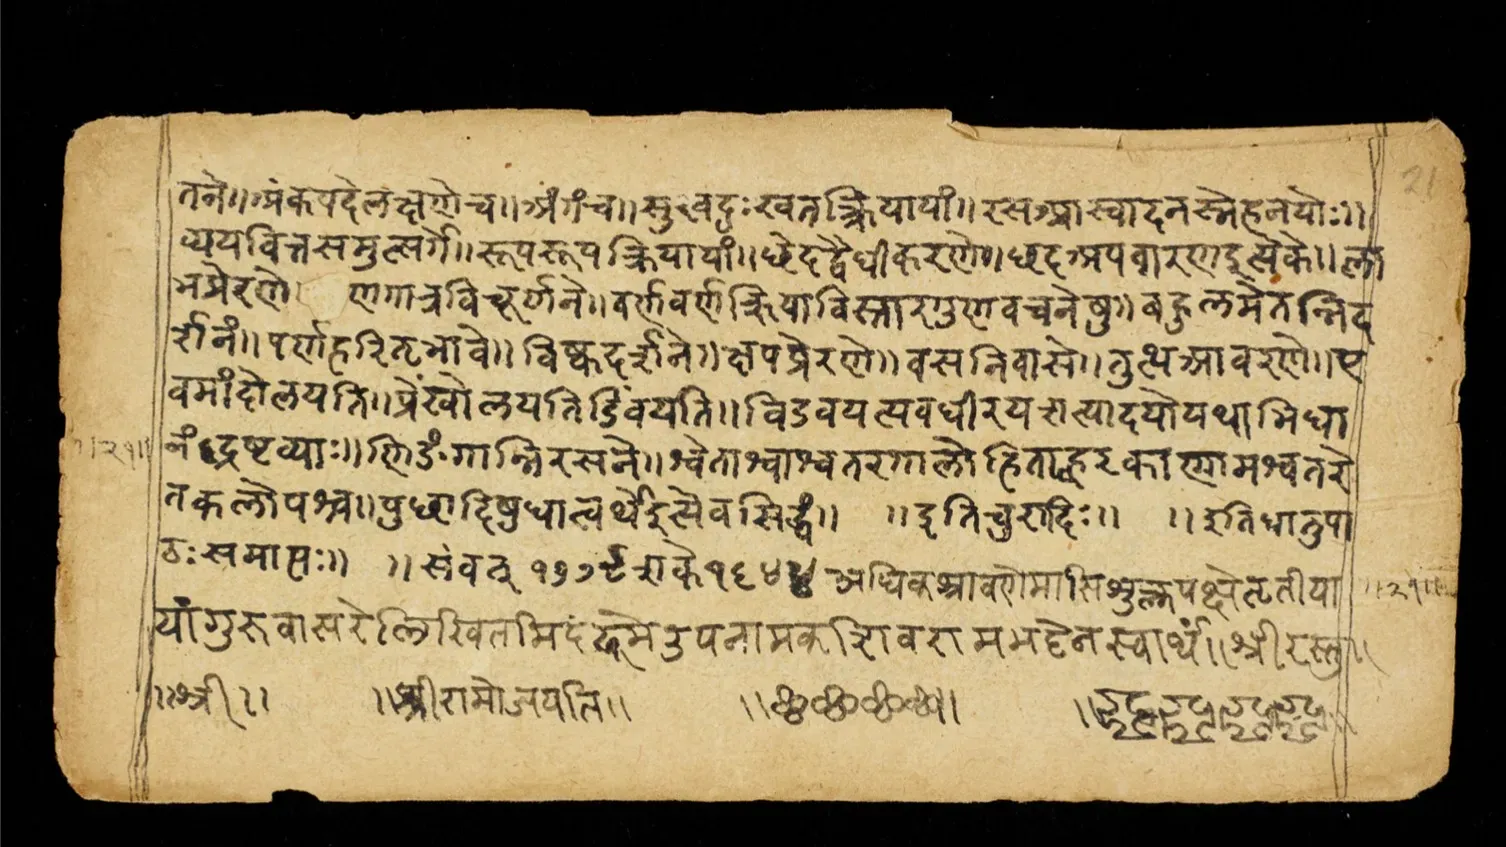 तने॥अंकपदेलक्षणेच॥अंगंच॥सुखदुःखतत्क्रियायां॥रसआस्वादनस्नेहनयोः॥
व्ययवित्तसमुत्सर्गे॥रूपरूपक्रियायां॥छेदद्वैधीकरणे॥छदअपवारणइत्येके॥ला
भप्रेरणे॥ व्रणगात्रविचूर्णने॥वर्णवर्णक्रियाविस्तारगुणवचनेषु॥बहुलमेतन्निद
र्शनं॥पर्णहरितभावे॥विष्कदर्शने॥क्षपप्रेरणे॥वसनिवासे॥तुत्थआवरणे॥ए
वमांदोलयति॥प्रेंखोलयतिडिंवयति॥विडवयत्यवधीरयत्यादयोयथाभिधा
नंद्रष्टव्याः॥णिङंगान्निरसने॥श्वेताश्वाश्वतरगालोहिताह्वरकाणामश्वतरे
तकलोपश्च॥पुछादिषुधात्वर्थइत्येवसिद्धं॥ ॥इतिचुरादिः॥ ॥इतिधातुपा
ठःसमाप्तः॥ ॥संवत् १७७९शके१६४४अधिकश्रावणेमासिशुक्लपक्षेतृतीया
यांगुरुवासरेलिखितमिदं स्वार्थं॥श्रीरस्तु॥
॥श्री॥ ॥श्रीरामोजयति॥ ॥छ॥छ॥छ॥छ॥
॥२१॥
॥२१॥
21